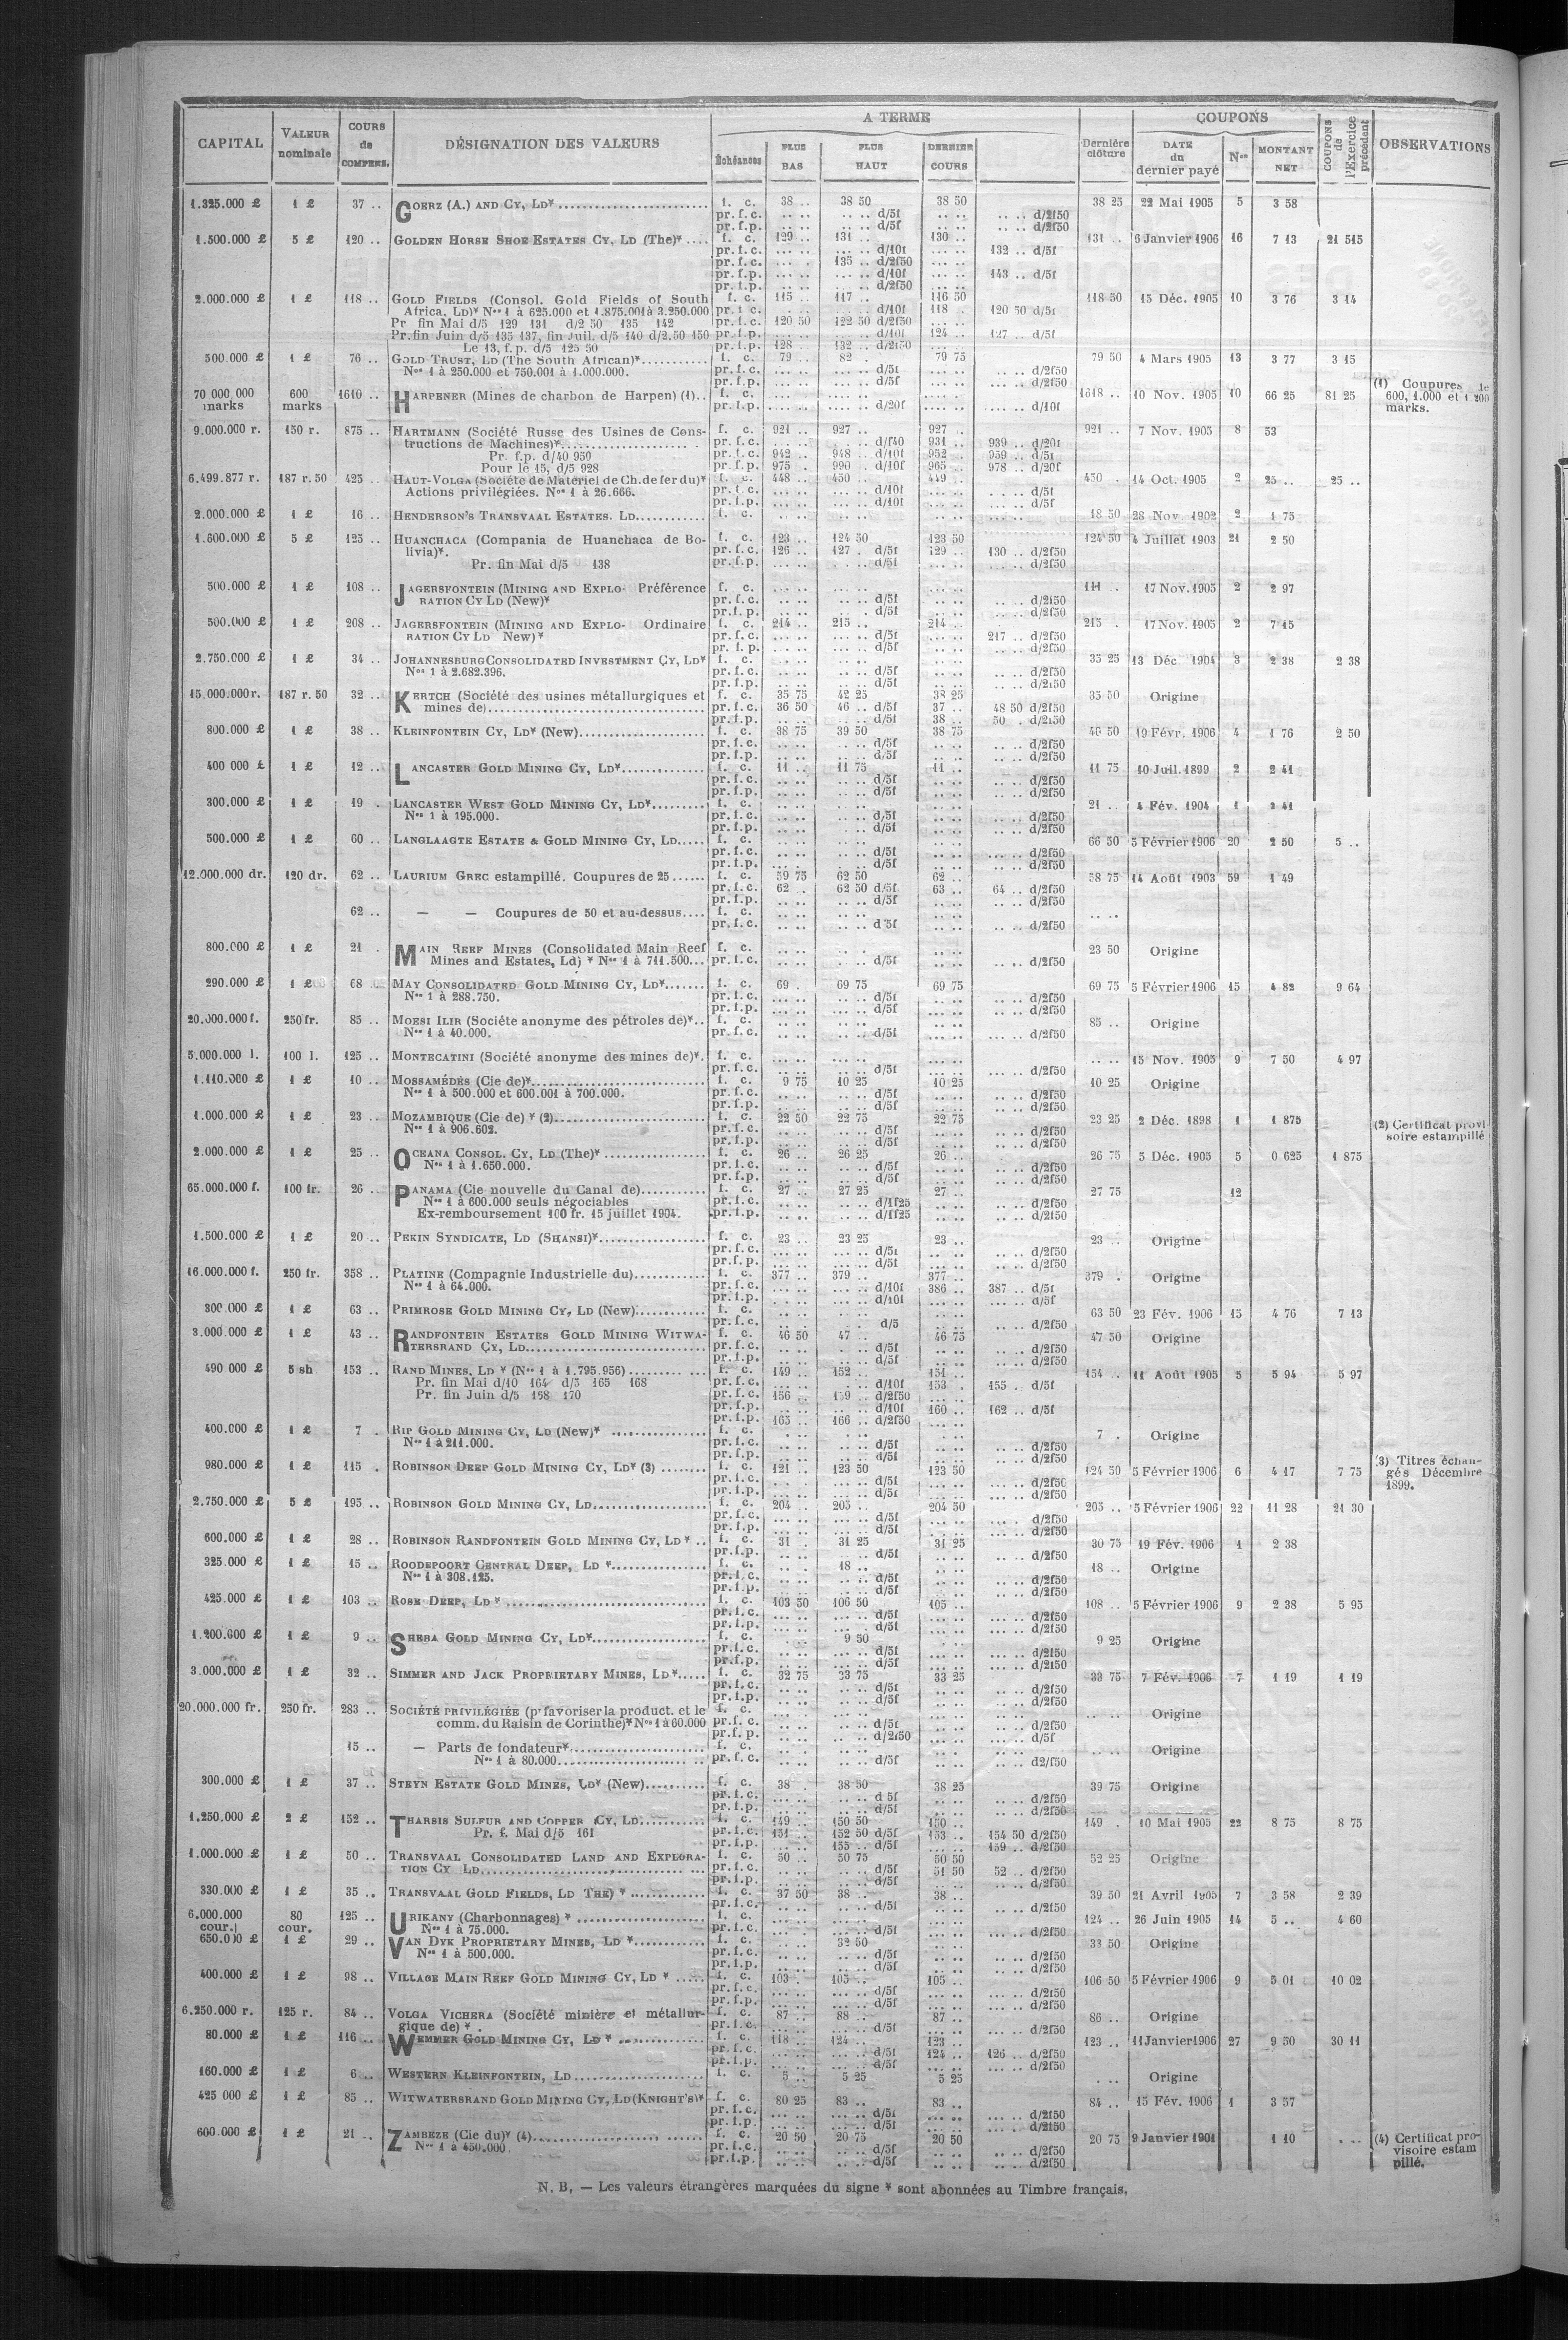 CAPITAL VALEUR nominale COURS de COMPENS. DÉSIGNATION DES VALEURS A TERME Dernière clôture COUPONS COUPONS de l'Exercice précédent OBSERVATIONS
Échéances PLUS BAS PLUS HAUT DERNIER COURS DATE du dernier payé Nos MONTANT NET
1.325.000 £ 1 £ 37 .. GOERZ (A.) AND CY, LD* f. c. 38 .. 38 50 38 50 38 25 22 Mai 1905 5 3 58
pr. f. c. .. .. .. .. d/5f .. .. .. .. d/2f50
pr. f. p. .. .. .. .. d/5f .. .. .. .. d/2f50
1.500.000 £ 5 £ 120 .. GOLDEN HORSE SHOE ESTATES CY, LD (The)* .... f. c. 129 .. 131 .. 130 .. 131 .. 6 Janvier 1906 16 7 13 21 515
pr. f. c. ... .. ... .. d/10f ... .. 132 .. d/5f
pr. f. c. ... .. 135 .. d/2f50 ... ..
pr. f. p. ... .. ... .. d/10f ... .. 143 .. d/5f
pr. f. p. ... .. ... .. d/2f50 ... ..
2.000.000 £ 1 £ 118 .. GOLD FIELDS (Consol. Gold Fields of South f. c. 115 .. 117 .. 116 50 118 50 15 Déc. 1905 10 3 76 3 14
Africa, LD)* Nos 1 à 625.000 et 1.875.001 à 3.250.000 pr. f. c. ... .. ... .. d/10f 118 . 120 50 d/5f
Pr fin Mai d/5 129 131 d/2 50 135 142 pr. f. c. 120 50 122 50 d/2f50 ... ..
Pr. fin Juin d/5 135 137, fin Juil. d/5 140 d/2.50 150 pr. f. p. ... .. ... .. d/10f 124 .. 127 .. d/5f
Le 13, f. p. d/5 125 50 pr. f. p. 128 .. 132 .. d/2f50
500.000 £ 1 £ 76 .. GOLD TRUST, LD (The South African)* f. c. 79 .. 82 . 79 75 79 50 4 Mars 1905 13 3 77 3 15
Nos 1 à 250.000 et 750.001 à 1.000.000. pr. f. c. ... .. ... .. d/5f ... .. ... .. d/2f50
pr. f. p. ... .. ... .. d/5f ... .. ... .. d/2f50
70 000,000 marks 600 marks 1610 .. HARPENER (Mines de charbon de Harpen) (1).. f. c. 1618 .. 10 Nov. 1905 10 66 25 81 25 (1) Coupures de 600, 1.000 et 1 200 marks.
pr. f. p. .... .. .... .. d/20f .... .. .... .. d/10f
9.000.000 r. 150 r. 875 .. HARTMANN (Société Russe des Usines de Cons- f. c. 921 .. 927 .. 927 . 921 .. 7 Nov. 1905 8 53
tructions de Machines)* pr. f. c. ... .. ... . d/f40 931 .. 939 .. d/20f
Pr. f.p. d/40 950 pr. f. c. 942 .. 948 .. d/10f 952 . 959 .. d/5f
Pour le 15, d/5 928 pr. f. p. 975 . 990 d/10f 965 .. 978 .. d/20f
6.499.877 r. 187 r. 50 425 .. HAUT-VOLGA (Société de Matériel de Ch. de fer du)* f. c. 448 .. 450 . 449 .. 450 . 14 Oct. 1905 2 25 .. 25 ..
Actions privilégiées. Nos 1 à 26.666. pr. f. c. ... .. ... .. d/10f ... .. ... .. d/5f
pr. f. c. ... .. ... .. d/10f ... .. ... .. d/5f
2.000.000 £ 1 £ 16 .. HENDERSON'S TRANSVAAL ESTATES. LD f. c. 18 50 28 Nov 1902 2 1 75
1.600.000 £ 5 £ 125 .. HUANCHACA (Compania de Huanchaca de Bo- f. c. 123 .. 124 50 123 50 124 50 4 Juillet 1903 21 2 50
livia)*. pr. f. c. 126 .. 127 . d/5f 129 .. 130 .. d/2f50
Pr. fin Mai d/5 138 pr. f. p. ... .. ... . d/5f ... .. ... .. d/2f50
500.000 £ 1 £ 108 .. JAGERSFONTEIN (MINING AND EXPLO- Préférence f. c. 111 .. 17 Nov. 1905 2 2 97
RATION CY LD (New)* pr. f. c. .. .. .. .. d/5f .. .. .. .. d/2f50
pr. f. p. .. .. .. .. d/5f .. .. .. .. d/2f50
500.000 £ 1 £ 208 .. JAGERSFONTEIN (MINING AND EXPLO- Ordinaire f. c. 214 .. 215 .. 214 .. 215 . 17 Nov. 1905 2 7 15
RATION CY LD New)* pr. f. c. ... .. ... .. d/5f ... .. 217 .. d/2f50
pr. f. p. ... .. ... .. d/5f ... .. d/2f50
2.750.000 £ 1 £ 34 .. JOHANNESBURG CONSOLIDATED INVESTMENT CY, LD* f. c. 35 25 13 Déc 1904 3 2 38 2 38
Nos 1 à 2.682.396. pr. f. c. .. .. .. .. d/5f .. .. .. .. d/2f50
pr. f. p. .. .. .. .. d/5f .. .. .. .. d/2f50
15.000.000 r. 187 r. 50 32 .. KERTCH (Société des usines métallurgiques et f. c. 35 75 42 25 38 25 35 50 Origine
mines de) pr. f. c. 36 50 46 .. d/5f 37 .. 48 50 d/2f50
pr. f. p. .. .. .. .. d/5f 38 .. 50 . d/2f50
800.000 £ 1 £ 38 .. KLEINFONTEIN CY, LD* (New) f. c. 38 75 39 50 38 75 40 50 19 Févr. 1906 4 1 76 2 50
pr. f. c. .. .. .. .. d/5f .. .. .. .. d/2f50
pr. f. p. .. .. .. .. d/5f .. .. .. .. d/2f50
400 000 £ 1 £ 12 .. LANCASTER GOLD MINING CY, LD* f. c. 11 .. 11 75 11 .. 11 75 10 Juil. 1899 2 2 41
pr. f. c. .. .. .. .. d/5f .. .. .. .. d/2f50
pr. f. p. .. .. .. .. d/5f .. .. .. .. d/2f50
300.000 £ 1 £ 19 . LANCASTER WEST GOLD MINING CY, LD* f. c. 21 .. 4 Fév. 1904 1 2 41
Nos 1 à 195.000. pr. f. c. .. .. .. .. d/5f .. .. .. .. d/2f50
pr. f. p. .. .. .. .. d/5f .. .. .. .. d/2f50
500.000 £ 1 £ 60 .. LANGLAAGTE ESTATE & GOLD MINING CY, LD..... f. c. 66 50 5 Février 1906 20 2 50 5 ..
pr. f. c. .. .. .. .. d/5f .. .. ... .. d/2f50
pr. f. p. .. .. .. .. d/5f .. .. ... .. d/2f50
12.000.000 dr. 120 dr. 62 .. LAURIUM GREC estampillé. Coupures de 25 f. c. 59 75 62 50 62 .. 58 75 14 Août 1903 59 1 49
pr. f. c. 62 . 62 50 d/5f 63 .. 64 .. d/2f50
pr. f. p. .. .. .. .. d/5f .. .. .. .. d/2f50
62 .. — — Coupures de 50 et au-dessus.... f. c. .. ..
pr. f. c. .. .. .. .. d 5f .. .. .. .. d/2f50
800.000 £ 1 £ 21 . MAIN REEF MINES (Consolidated Main Reef f. c. 23 50 Origine
Mines and Estates, Ld) * Nos 1 à 711.500... pr. f. c. .. .. .. .. d/5f .. .. .. .. d/2f50
290.000 £ 1 £ 68 .. MAY CONSOLIDATED GOLD MINING CY, LD* f. c. 69 . 69 75 69 75 69 75 5 Février 1906 15 4 82 9 64
Nos 1 à 288.750. pr. f. c. .. .. .. .. d/5f .. .. .. .. d/2f50
pr. f. p. .. .. .. .. d/5f .. .. .. .. d/2f50
20.000.000 f. 250 fr. 85 .. MOESI ILIR (Sociéte anonyme des pétroles de)*.. f. c. 85 .. Origine
Nos 1 à 40.000. pr. f. c. .. .. .. .. d/5f .. .. .. .. d/2f50
5.000.000 l. 100 l. 125 .. MONTECATINI (Société anonyme des mines de)*. f. c. .. .. 15 Nov. 1905 9 7 50 4 97
pr. f. c. ... .. ... .. d/5f ... .. ... .. d/2f50
1.110.000 £ 1 £ 10 .. MOSSAMÉDÈS (Cie de)* f. c. 9 75 10 25 10 25 10 25 Origine
Nos 1 à 500.000 et 600.001 à 700.000. pr. f. c. .. .. .. .. d/5f .. .. .. .. d/2f50
pr. f. p. .. .. .. .. d/5f .. .. .. .. d/2f50
1.000.000 £ 1 £ 23 .. MOZAMBIQUE (Cie de) * (2) f. c. 22 50 22 75 22 75 23 25 2 Déc. 1898 1 1 875 (2) Certificat provisoire estampillé
Nos 1 à 906.602. pr. f. c. .. .. .. .. d/5f .. .. .. .. d/2f50
pr. f. p. .. .. .. .. d/5f .. .. .. .. d/2f50
2.000.000 £ 1 £ 25 .. OCEANA CONSOL. CY, LD (The)* f. c. 26 .. 26 25 26 .. 26 75 5 Déc. 1905 5 0 625 1 875
Nos 1 à 1.650.000. pr. f. c. .. .. .. .. d/5f .. .. .. .. d/2f50
pr. f. p. .. .. .. .. d/5f .. .. .. .. d/2f50
65.000.000 f. 100 fr. 26 .. PANAMA (Cie nouvelle du Canal de) f. c. 27 .. 27 25 27 .. 27 75 12
Nos 1 à 600.000 seuls négociables pr. f. c. .. .. .. .. d/1f25 .. .. .. .. d/2f50
Ex-remboursement 100 fr. 15 juillet 1904. pr. f. p. .. .. .. .. d/1f25 .. .. .. .. d/2f50
1.500.000 £ 1 £ 20 .. PEKIN SYNDICATE, LD (SHANSI)* f. c. 23 .. 23 25 23 .. 23 .. Origine
pr. f. c. ... .. ... .. d/5f .. .. .. .. d/2f50
pr. f. p. ... .. ... .. d/5f .. .. .. .. d/2f50
16.000.000 f. 250 fr. 358 .. PLATINE (Compagnie Industrielle du) f. c. 377 .. 379 .. 377 .. 379 . Origine
Nos 1 à 64.000. pr. f. c. ... .. ... .. d/10f 386 .. 387 .. d/5f
pr. f. p. ... .. ... .. d/10f ... .. ... .. d/5f
300.000 £ 1 £ 63 .. PRIMROSE GOLD MINING CY, LD (New) f. c. 63 50 23 Fév. 1906 15 4 76 7 13
pr. f. c. .. .. .. . d/5 .. .. .. .. d/2f50
3.000.000 £ 1 £ 43 .. RANDFONTEIN ESTATES GOLD MINING WITWA- f. c. 46 50 47 .. 46 75 47 50 Origine
TERSRAND CY, LD pr. f. c. .. .. .. .. d/5f .. .. .. .. d/2f50
pr. f. p. .. .. .. .. d/5f .. .. .. .. d/2f50
490 000 £ 5 sh 153 .. RAND MINES, LD * (Nos 1 à 1.795.956) f. c. 149 .. 152 .. 151 .. 154 .. 11 Août 1905 5 5 94 5 97
Pr. fin Mai d/10 164 d/5 165 168 pr. f. c. ... .. ... .. d/10f 153 . 155 . d/5f
Pr. fin Juin d/5 168 170 pr. f. c. 156 .. 159 .. d/2f50 ... ..
pr. f. p. ... .. ... .. d/10f 160 .. 162 .. d/5f
pr. f. p. 165 .. 166 .. d/2f50 ... ..
400.000 £ 1 £ 7 . RIP GOLD MINING CY, LD (New)* f. c. 7 . Origine
Nos 1 à 211.000. pr. f. c. .. .. .. .. d/5f .. .. .. .. d/2f50
pr. f. p. .. .. .. .. d/5f .. .. .. .. d/2f50
980.000 £ 1 £ 115 . ROBINSON DEEP GOLD MINING CY, LD* (3) f. c. 121 .. 123 50 123 50 124 50 5 Février 1906 6 4 17 7 75 (3) Titres échangés Décembre 1899.
pr. f. c. ... .. ... .. d/5f ... .. ... .. d/2f50
pr. f. p. ... .. ... .. d/5f ... .. ... .. d/2f50
2.750.000 £ 5 £ 195 .. ROBINSON GOLD MINING CY, LD f. c. 204 .. 205 .. 204 50 205 .. 5 Février 1906 22 11 28 21 30
pr. f. c. ... .. ... .. d/5f ... .. ... . d/2f50
pr. f. p. ... .. ... .. d/5f ... .. ... .. d/2f50
600.000 £ 1 £ 28 .. ROBINSON RANDFONTEIN GOLD MINING CY, LD * .. f. c. 31 . 31 25 31 25 30 75 19 Fév. 1906 1 2 38
pr. f. p. .. .. .. .. d/5f .. .. .. .. d/2f50
325.000 £ 1 £ 15 .. ROODEPOORT CENTRAL DEEP, LD * f. c. .. . 18 .. 18 .. Origine
Nos 1 à 308.125. pr. f. c. .. .. .. .. d/5f .. .. .. .. d/2f50
pr. f. p. .. .. .. .. d/5f .. .. .. .. d/2f50
425.000 £ 1 £ 103 .. ROSE DEEP, LD * f. c. 103 50 106 50 105 .. 108 .. 5 Février 1906 9 2 38 5 95
pr. f. c. ... .. ... .. d/5f ... .. ... .. d/2f50
pr. f. p. ... .. ... .. d/5f ... .. ... .. d/2f50
1.200.000 £ 1 £ 9 .. SHEBA GOLD MINING CY, LD* f. c. .. .. 9 50 9 25 Origine
pr. f. c. .. .. ... .. d/5f .. .. ... .. d/2f50
pr. f. p. .. .. .. .. d/5f .. .. .. .. d/2f50
3.000.000 £ 1 £ 32 .. SIMMER AND JACK PROPRIETARY MINES, LD *..... f. c. 32 75 33 75 33 25 33 75 7 Fév. 1906 7 1 19 1 19
pr. f. c. .. .. .. .. d/5f .. .. .. .. d/2f50
pr. f. p. .. .. .. .. d/5f .. .. .. .. d/2f50
20.000.000 fr. 250 fr. 283 .. SOCIÉTÉ PRIVILÉGIÉE (pr favoriser la product. et le f. c. .. .. Origine
comm. du Raisin de Corinthe)* Nos 1 à 60.000 pr. f. c. .. .. .. .. d/5f .. .. .. .. d/2f50
pr. f. p. .. .. .. .. d/2f50 .. .. .. .. d/5f
15 .. — Parts de fondateur* f. c. .. .. Origine
Nos 1 à 80.000 pr. f. c. .. .. .. .. d/5f .. .. .. .. d2/f50
300.000 £ 1 £ 37 .. STEYN ESTATE GOLD MINES, LD* (New) f. c. 38 . 38 50 38 25 39 75 Origine
pr. f. c. .. .. .. .. d 5f .. .. .. .. d/2f50
pr. f. p. .. .. .. .. d/5f .. .. .. .. d/2f50
1.250.000 £ 2 £ 152 .. THARSIS SULFUR AND COPPER CY, LD f. c. 149 .. 150 50 150 .. 149 . 10 Mai 1905 22 8 75 8 75
Pr. f. Mai d/5 161 pr. f. c. 151 .. 152 50 d/5f 153 .. 154 50 d/2f50
pr. f. p. ... .. 155 .. d/5f ... .. 159 .. d/2f50
1.000.000 £ 1 £ 50 .. TRANSVAAL CONSOLIDATED LAND AND EXPLORA- f. c. 50 .. 50 75 50 50 52 25 Origine
TION CY LD pr. f. c. .. .. .. .. d/5f 51 50 52 .. d/2f50
pr. f. p. .. .. .. .. d/5f .. .. .. .. d/2f50
330.000 £ 1 £ 35 .. TRANSVAAL GOLD FIELDS, LD THE) * f. c. 37 50 38 .. 38 .. 39 50 21 Avril 1905 7 3 58 2 39
pr. f. c. .. .. .. .. d/5f .. .. .. .. d/2f50
6.000.000 cour. 80 cour. 125 .. URIKANY (Charbonnages) * f. c. 124 .. 26 Juin 1905 14 5 .. 4 60
Nos 1 à 75.000. pr. f. c. ... .. ... .. d/5f ... .. ... .. d/2f50
650.000 £ 1 £ 29 .. VAN DYK PROPRIETARY MINES, LD * f. c. .. .. 32 50 .. .. 33 50 Origine
Nos 1 à 500.000. pr. f. c. .. .. .. .. d/5f .. .. .. .. d/2f50
pr. f. p. .. .. .. .. d/5f .. .. .. .. d/2f50
400.000 £ 1 £ 98 .. VILLAGE MAIN REEF GOLD MINING CY, LD * ..... f. c. 103 . 105 .. 105 .. 106 50 5 Février 1906 9 5 01 10 02
pr. f. c. ... .. ... .. d/5f ... .. ... .. d/2f50
pr. f. p. ... .. ... .. d/5f ... .. ... .. d/2f50
6.250.000 r. 125 r. 84 .. VOLGA VICHERA (Société minière et métallur- f. c. 87 .. 88 .. 87 .. 86 .. Origine
gique de) * . pr. f. c. ... .. ... .. d/5f .. .. ... .. d/2f50
80.000 £ 1 £ 116 .. WEMMER GOLD MINING CY, LD * f. c. 118 .. 124 .. 123 .. 123 .. 11 Janvier 1906 27 9 50 30 11
pr. f. c. ... .. ... .. d/5f 124 .. 126 .. d/2f50
pr. f. p. ... .. ... .. d/5f ... .. ... .. d/2f50
160.000 £ 1 £ 6 .. WESTERN KLEINFONTEIN, LD f. c. 5 .. 5 25 5 25 . .. Origine
425 000 £ 1 £ 85 .. WITWATERSRAND GOLD MINING CY, LD (KNIGHT'S)* f. c. 80 25 83 .. 83 .. 84 .. 15 Fév. 1906 1 3 57
pr. f. c. ... .. ... .. d/5f ... .. ... .. d/2f50
pr. f. p. ... .. ... .. d/5f ... .. ... .. d/2f50
600.000 £ 1 £ 21 .. ZAMBÈZE (Cie du)* (4) f. c. 20 50 20 75 20 50 20 75 9 Janvier 1901 1 10 . .. (4) Certificat provisoire estam pillé.
Nos 1 à 450.000 pr. f. c. .. .. .. .. d/5f .. .. .. .. d/2f50
pr. f. p. .. .. .. .. d/5f .. .. .. .. d/2f50
N. B. — Les valeurs étrangères marquées du signe * sont abonnées au Timbre français.